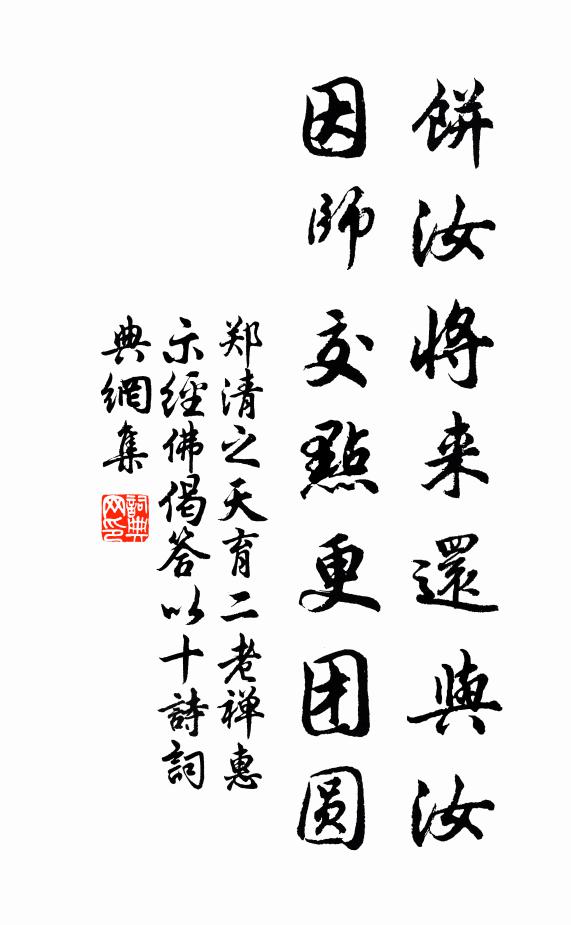 餅汝將来還與汝
因師交點更团圆
郑清之天育二老禅惠
示經佛偈答以十詩詞
典網集
詞典
网印